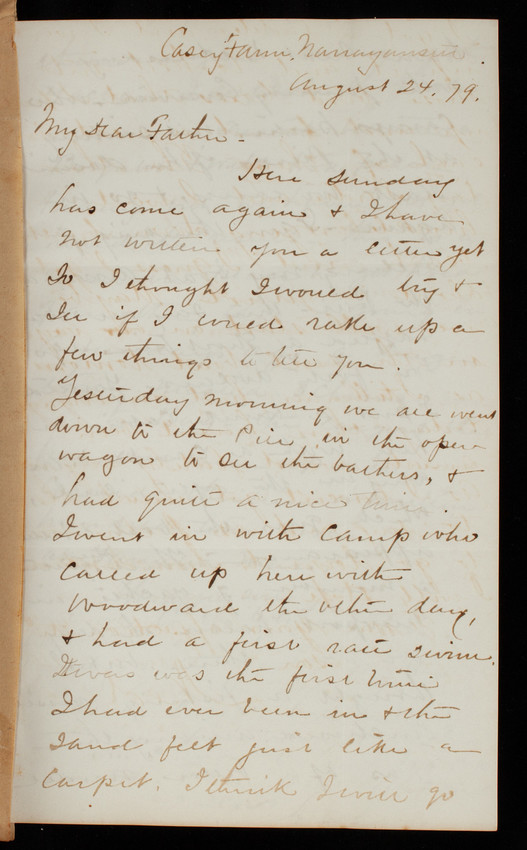 Casey Farm, Narragansett.
August 24. 79.
My Dear Father -
Here Sunday
has come again & I have
not written you a letter yet
So I thought I would try &
See if I could rake up a
few things to tell you.
Yesterday morning we all went
down to the Pier in the open
wagon to see the bathers, &
had quite a nice time.
I went in with Camp who
called up here with
Woodward the other day,
& had a first rate swim.
It was the first time
I had ever been in & the
sand felt just like a
carpet. I think I will go